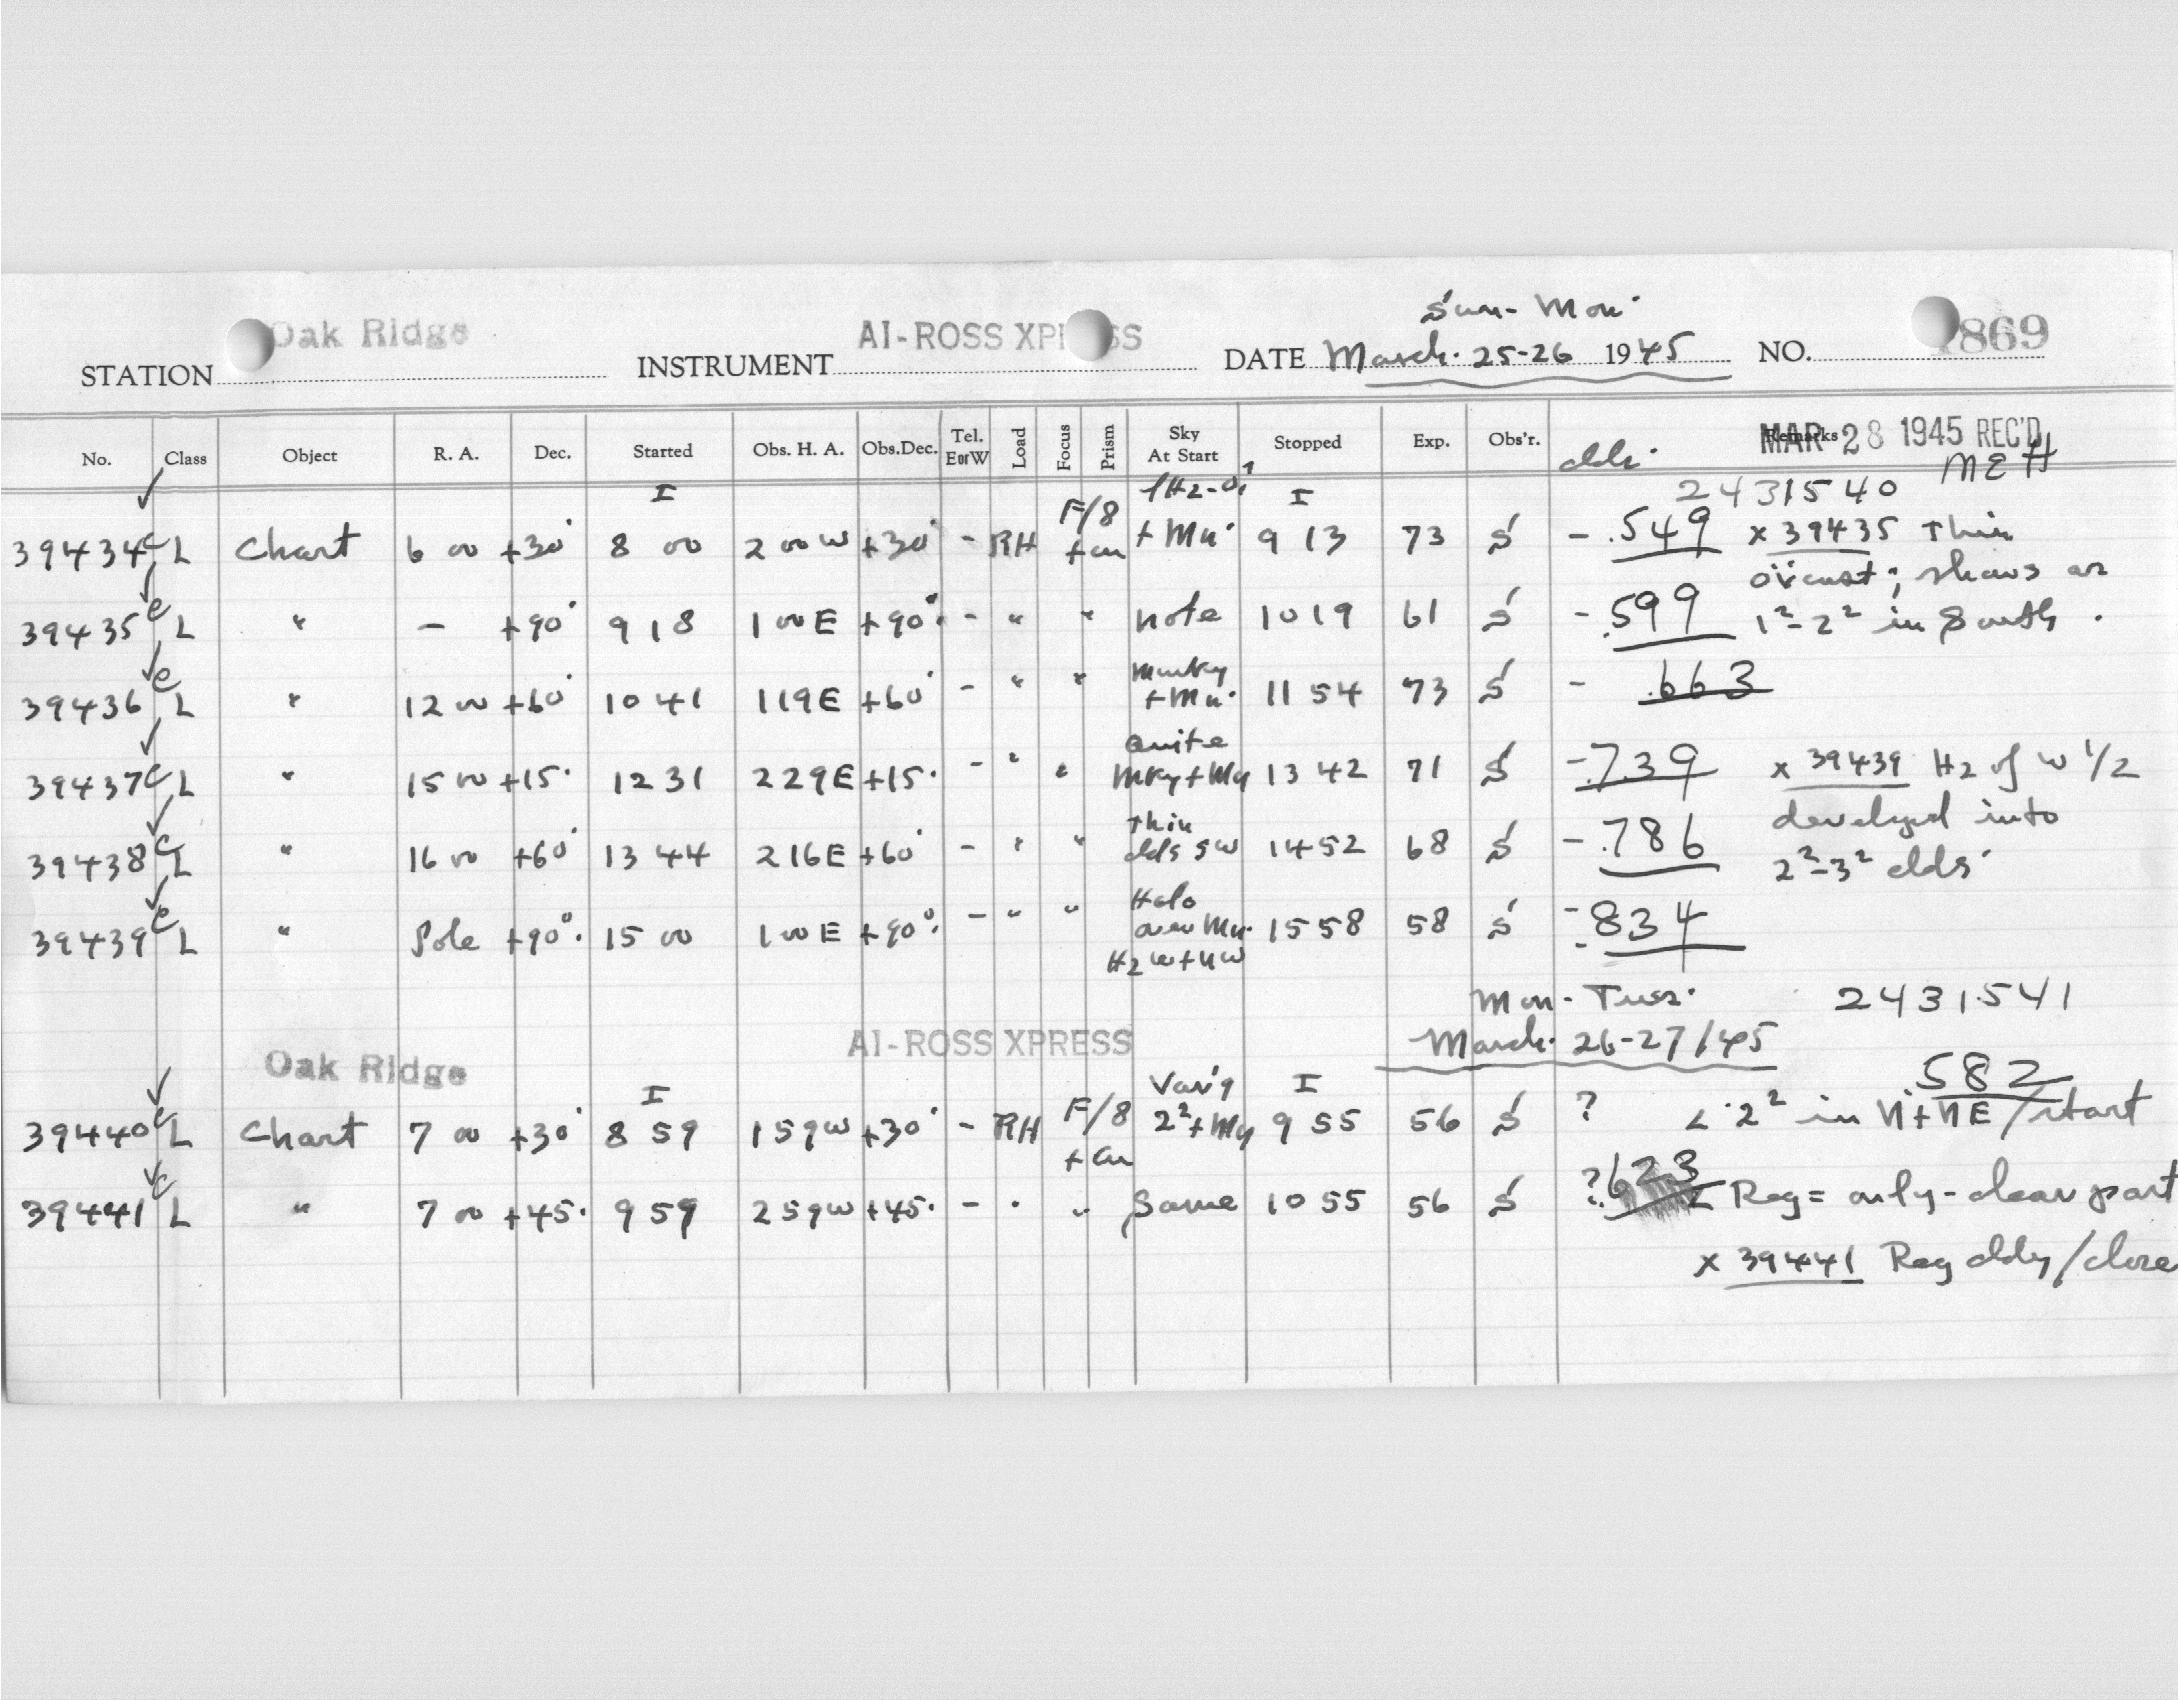 Sun- Mon.
Oak Ridge AI-ROSS XP SS 869
STATION INSTRUMENT DATE March. 25-26 1945 NO.
No. Class Object R. A. Dec. Started Obs. H. A. Obs.Dec. Tel. EorW Load Focus Prism Sky At Start Stopped Exp. Obs'r. Remarks
MAR 28 1945 REC'D
MEH
I I 2431540
39434 c L Chart 6 00 +30° 8 00 2 00 W +30° - RH F/8 + Mn. 9 13 73 S - .549 x 39435 Thin
o'icast; shows as
39435 c L " - +90° 9 18 1 00 E +90° - " " note 10 19 61 S - .599 1²-2² in South.
39436 c L " 12 00 +60° 10 41 1 19 E +60° - " " Murky + Mn. 11 54 73 S - .663
39437 c L " 15 00 +15. 12 31 2 29 E +15. - " " Quite Mky + My 13 42 71 S - .739 x 39439 Hz of W 1/2
developed into
39438 c L " 16 00 +60° 13 44 2 16 E +60° - " " Thin clds SW 14 52 68 S - .786 2²-3² clds.
39439 c L " Pole +90°. 15 00 1 00 E +90°. - " " Halo over Mn. Hz W + NW 15 58 58 S - .834
Mon- Tues. 2431541
Oak Ridge AI-ROSS XPRESS March. 26-27/45
I I .582
39440 c L Chart 7 00 +30° 8 59 1 59 W +30° - RH F/8 Var'g 2² + My 9 55 56 S ? < .2² in N + NE / start
39441 c L " 7 00 +45. 9 59 2 59 W +45. - " " Same 10 55 56 S ? .623 < Reg = only - clear part
x 39441 Reg cldy / close